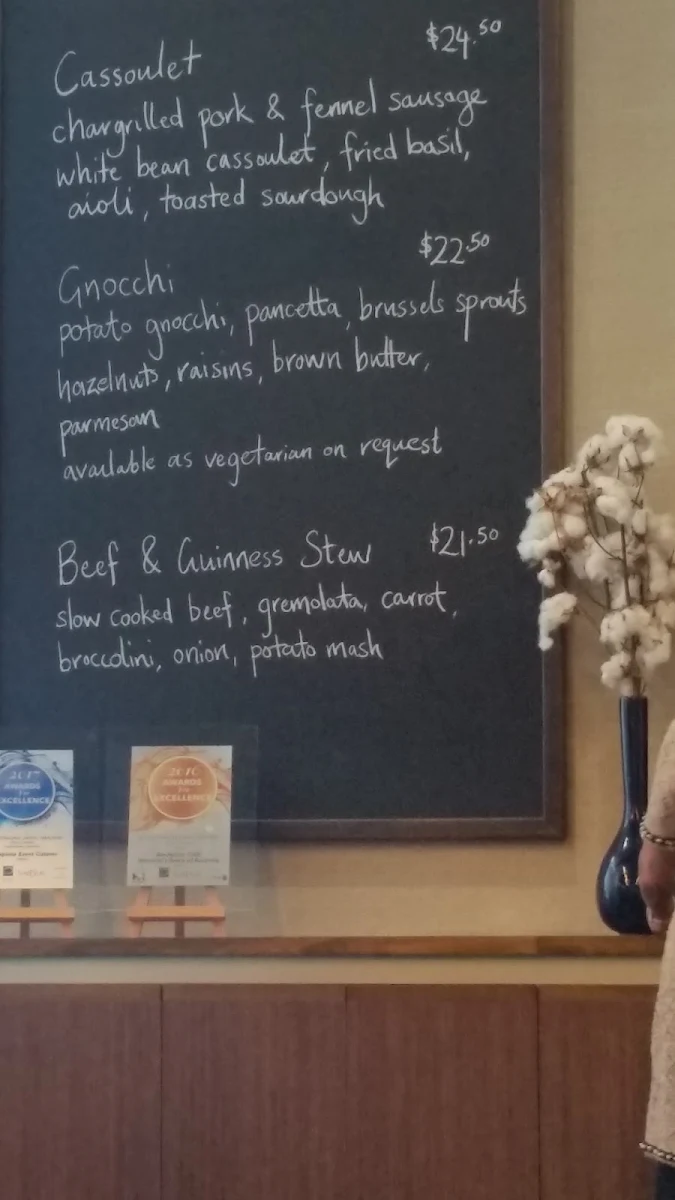 $24.50
Cassoulet
chargrilled pork & fennel sausage
white bean cassoulet, fried basil,
aioli, toasted sourdough
$22.50
Gnocchi
potato gnocchi, pancetta, brussels sprouts
hazelnuts, raisins, brown butter,
parmesan
available as vegetarian on request
Beef & Guinness Stew $21.50
slow cooked beef, gremolata, carrot,
broccolini, onion, potato mash
2017
AWARDS
For
EXCELLENCE
2016
AWARDS
For
EXCELLENCE